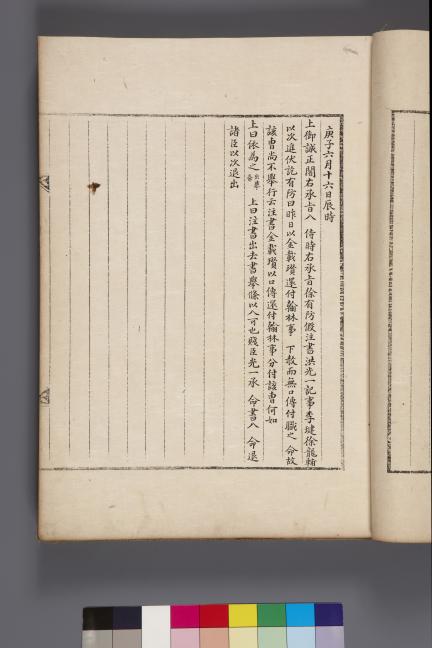 庚子六月十六日辰時
上御誠正閤右承旨入 侍時右承旨徐有防假注書洪光一記事李㙖徐龍輔
以次進伏訖有防曰昨日以金載瓚還付翰林事 下敎而無口傳付職之 命故
該曹尙不擧行云注書金載瓚以口傳還付翰林事分付該曹何如
上曰依爲之出擧條 上曰注書出去書擧條以入可也賤臣光一承 命書入 命退
諸臣以次退出